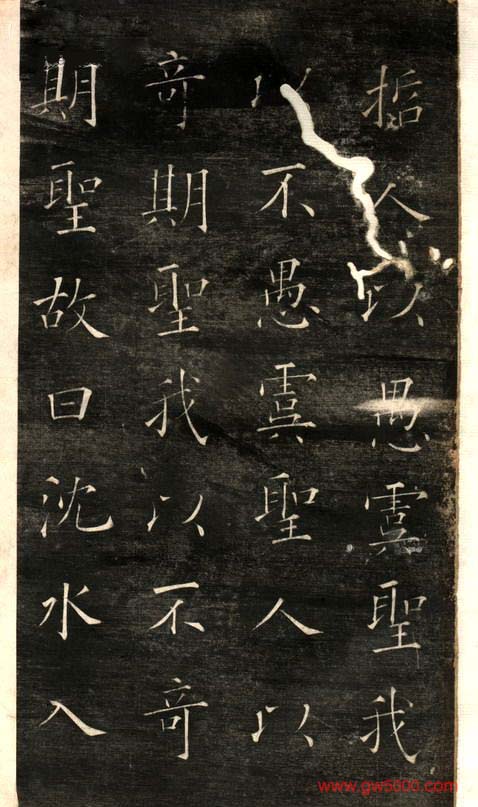 哲人以愚虞聖我
以不愚虞聖人以
奇期聖我以不奇
期聖故曰沈水入
www.gw5000.com